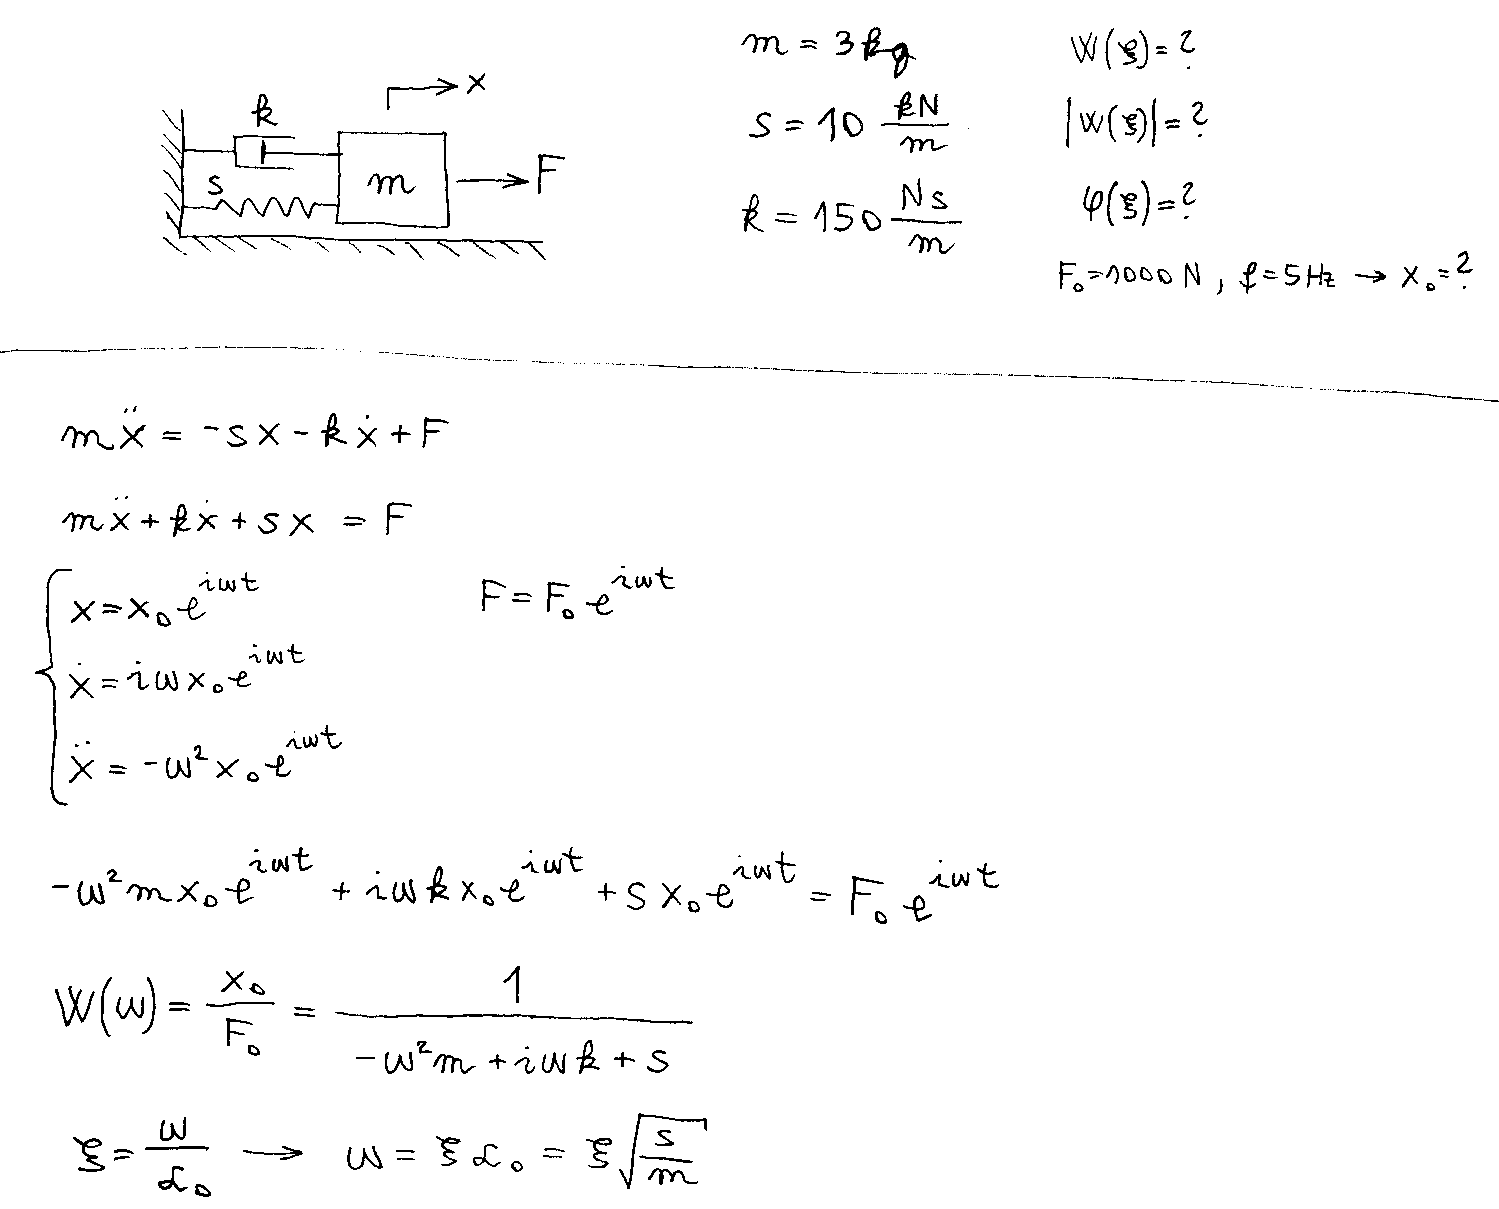 m = 3 kg
s = 10 kN/m
k = 150 Ns/m
W(ξ) = ?
|W(ξ)| = ?
φ(ξ) = ?
F₀ = 1000 N, f = 5 Hz → x₀ = ?
k
s
m
x
F
mẍ = -sx - kẋ + F
mẍ + kẋ + sx = F
x = x₀ e^{iωt} F = F₀ e^{iωt}
ẋ = iωx₀ e^{iωt}
ẍ = -ω² x₀ e^{iωt}
-ω² m x₀ e^{iωt} + iωk x₀ e^{iωt} + s x₀ e^{iωt} = F₀ e^{iωt}
W(ω) = x₀/F₀ = 1/(-ω²m + iωk + s)
ξ = ω/α₀ → ω = ξα₀ = ξ√(s/m)